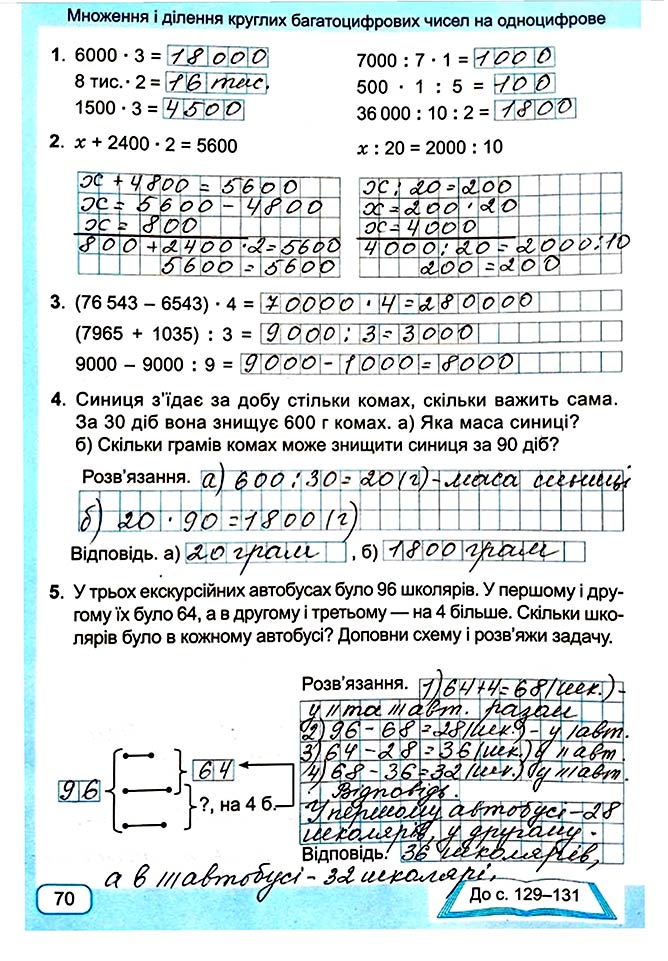 Множення і ділення круглих багатоцифрових чисел на одноцифрове
1. 6000 · 3 = 18000
8 тис. · 2 = 16 тис.
1500 · 3 = 4500
7000 : 7 · 1 = 1000
500 · 1 : 5 = 100
36 000 : 10 : 2 = 1800
2. x + 2400 · 2 = 5600
x + 4800 = 5600
x = 5600 - 4800
x = 800
800 + 2400 · 2 = 5600
5600 = 5600
x : 20 = 2000 : 10
x : 20 = 200
x = 200 · 20
x = 4000
4000 : 20 = 2000 : 10
200 = 200
3. (76 543 – 6543) · 4 = 70000 · 4 = 280000
(7965 + 1035) : 3 = 9000 : 3 = 3000
9000 – 9000 : 9 = 9000 - 1000 = 8000
4. Синиця з'їдає за добу стільки комах, скільки важить сама.
За 30 діб вона знищує 600 г комах. а) Яка маса синиці?
б) Скільки грамів комах може знищити синиця за 90 діб?
Розв'язання. а) 600 : 30 = 20 (г) - маса синиці
б) 20 · 90 = 1800 (г)
Відповідь. а) 20 грам, б) 1800 грам
5. У трьох екскурсійних автобусах було 96 школярів. У першому і дру-
гому їх було 64, а в другому і третьому — на 4 більше. Скільки шко-
лярів було в кожному автобусі? Доповни схему і розв'яжи задачу.
96
64
?, на 4 б.
Розв'язання. 1) 64 + 4 = 68 (шк.) -
у II та III авт. разом
2) 96 - 68 = 28 (шк.) - у I авт.
3) 64 - 28 = 36 (шк.) у II авт.
4) 68 - 36 = 32 (шк.) у III авт.
Відповідь.
У першому автобусі - 28
школярів, у другому -
Відповідь. 36 школярів,
а в III автобусі - 32 школярі.
70
До с. 129–131